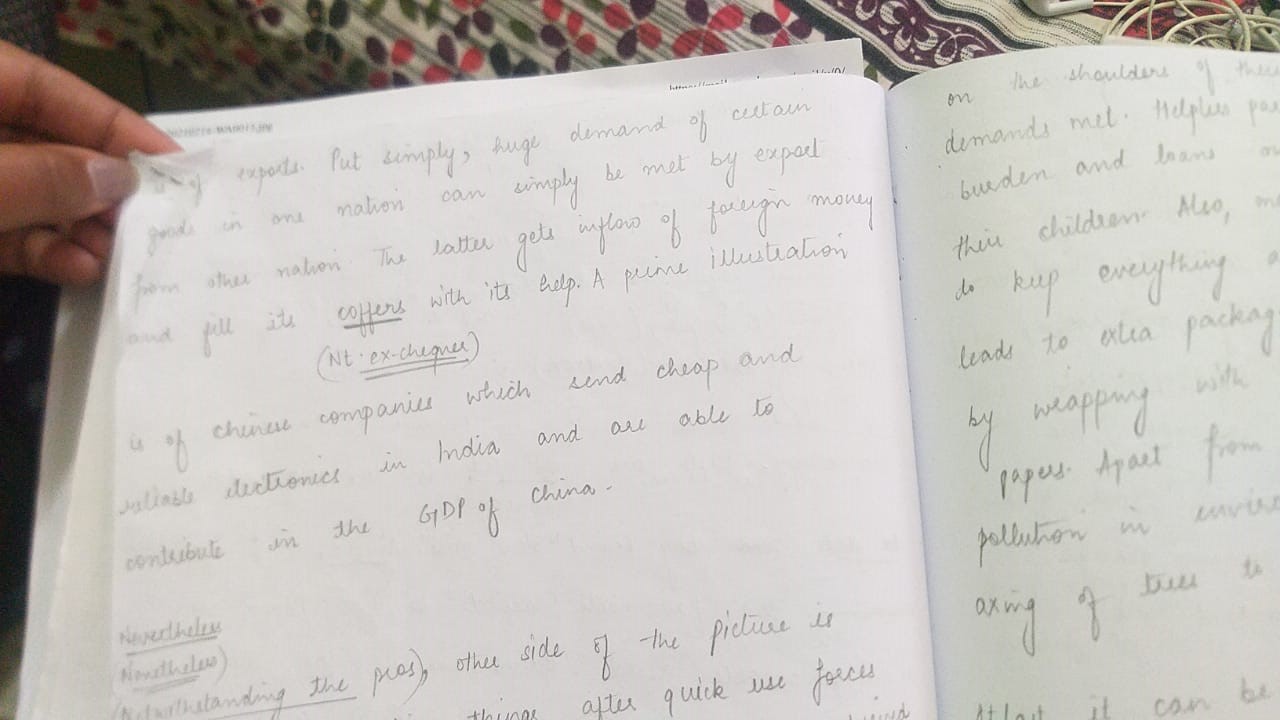 of exports. Put simply, huge demand of certain
goods in one nation can simply be met by export
from other nation. The latter gets inflow of foreign money
and fill its coffers with its help. A prime illustration
(Nt. ex-chequer)
is of chinese companies which send cheap and
reliable electronics in India and are able to
contribute in the GDP of China.
Nevertheless
(Nonetheless)
(Notwithstanding the pros), other side of the picture is
things after quick use forces
on the shoulders of
demands met. Helpless
burden and loans
their children. Also,
do keep everything
leads to extra
by wrapping with
papers. Apart from
pollution in
axing of trees to
it can be